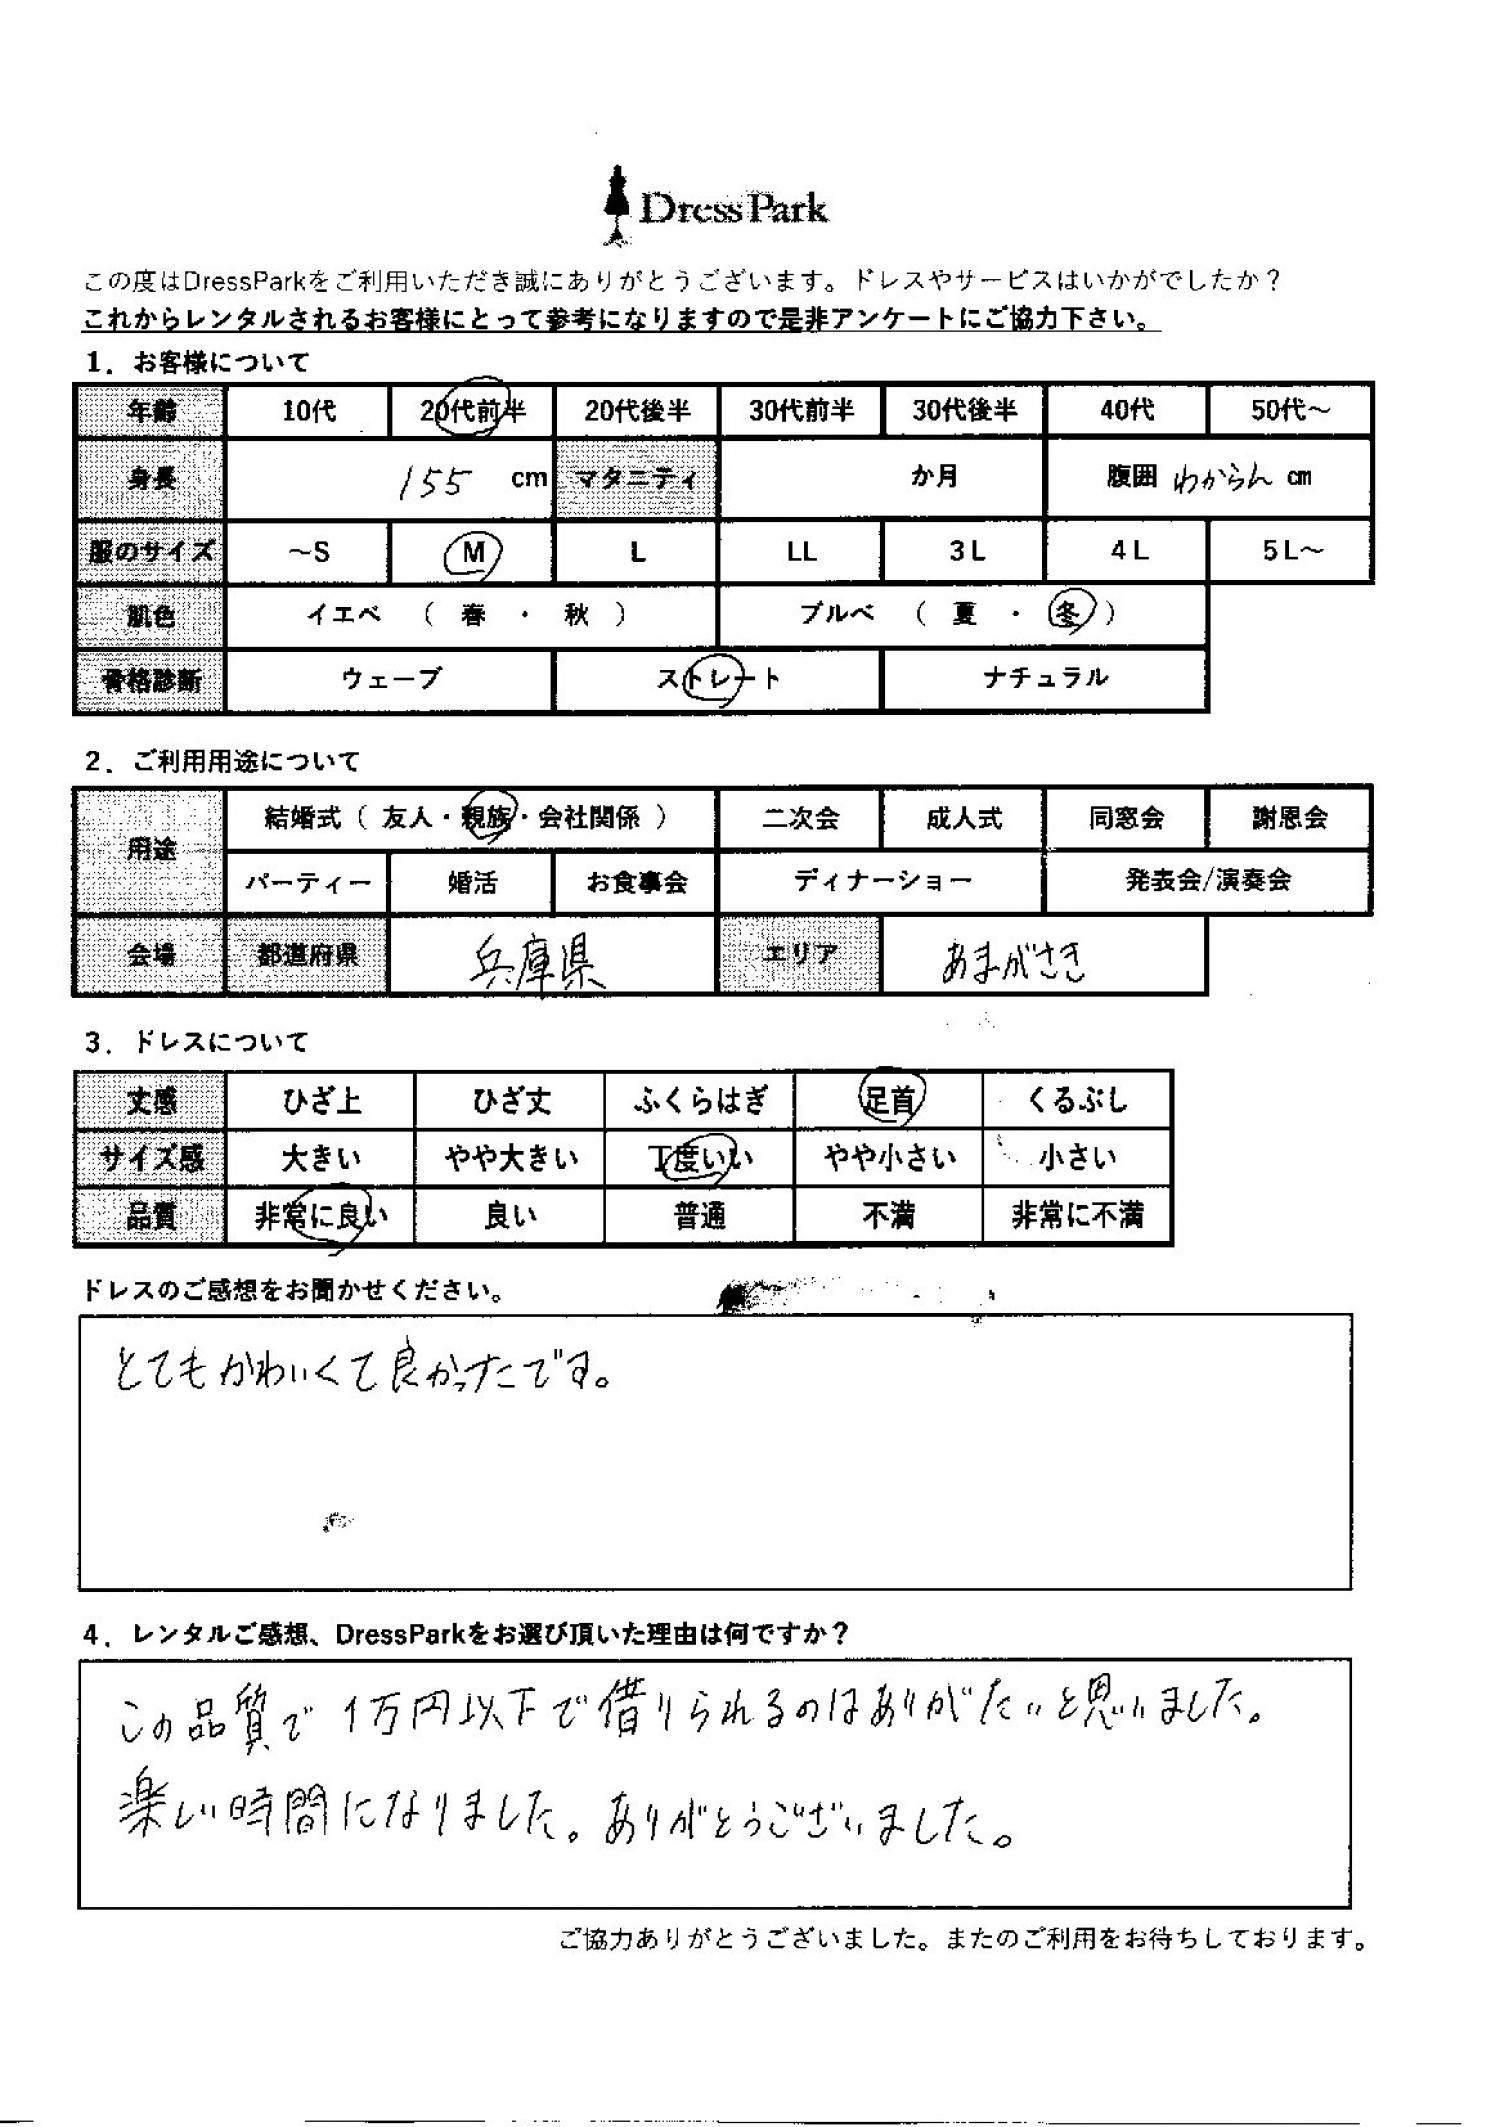 DressPark
この度はDressParkをご利用いただき誠にありがとうございます。ドレスやサービスはいかがでしたか？
これからレンタルされるお客様にとって参考になりますので是非アンケートにご協力下さい。
1．お客様について
年齢 10代 20代前半 20代後半 30代前半 30代後半 40代 50代～
身長 155 cm マタニティ か月 腹囲 わからん cm
服のサイズ ～S M L LL 3L 4L 5L～
肌色 イエベ （ 春 ・ 秋 ） ブルベ （ 夏 ・ 冬 ）
骨格診断 ウェーブ ストレート ナチュラル
2．ご利用用途について
用途 結婚式（ 友人・親族・会社関係 ） 二次会 成人式 同窓会 謝恩会
パーティー 婚活 お食事会 ディナーショー 発表会/演奏会
会場 都道府県 兵庫県 エリア あまがさき
3．ドレスについて
丈感 ひざ上 ひざ丈 ふくらはぎ 足首 くるぶし
サイズ感 大きい やや大きい 丁度いい やや小さい 小さい
品質 非常に良い 良い 普通 不満 非常に不満
ドレスのご感想をお聞かせください。
とてもかわいくて良かったです。
4．レンタルご感想、DressParkをお選び頂いた理由は何ですか？
この品質で1万円以下で借りられるのはありがたいと思いました。
楽しい時間になりました。ありがとうございました。
ご協力ありがとうございました。またのご利用をお待ちしております。